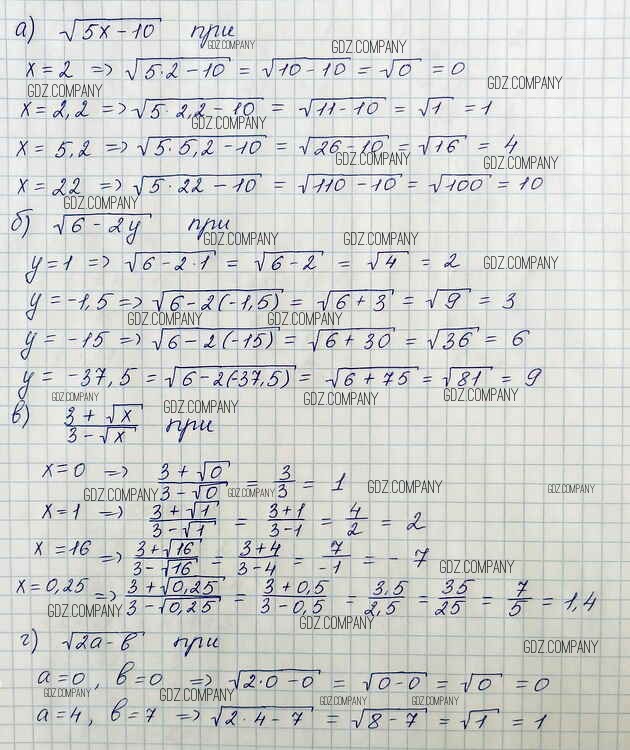 а) √(5x − 10) при
x = 2 => √(5·2 − 10) = √(10 − 10) = √0 = 0
x = 2,2 => √(5·2,2 − 10) = √(11 − 10) = √1 = 1
x = 5,2 => √(5·5,2 − 10) = √(26 − 10) = √16 = 4
x = 22 => √(5·22 − 10) = √(110 − 10) = √100 = 10
б) √(6 − 2y) при
y = 1 => √(6 − 2·1) = √(6 − 2) = √4 = 2
y = −1,5 => √(6 − 2(−1,5)) = √(6 + 3) = √9 = 3
y = −15 => √(6 − 2(−15)) = √(6 + 30) = √36 = 6
y = −37,5 = √(6 − 2(−37,5)) = √(6 + 75) = √81 = 9
в) (3 + √x)/(3 − √x) при
x = 0 => (3 + √0)/(3 − √0) = 3/3 = 1
x = 1 => (3 + √1)/(3 − √1) = (3+1)/(3−1) = 4/2 = 2
x = 16 => (3 + √16)/(3 − √16) = (3+4)/(3−4) = 7/−1 = −7
x = 0,25 => (3 + √0,25)/(3 − √0,25) = (3 + 0,5)/(3 − 0,5) = 3,5/2,5 = 35/25 = 7/5 = 1,4
г) √(2a − b) при
a = 0, b = 0 => √(2·0 − 0) = √(0 − 0) = √0 = 0
a = 4, b = 7 => √(2·4 − 7) = √(8 − 7) = √1 = 1
GDZ.COMPANY